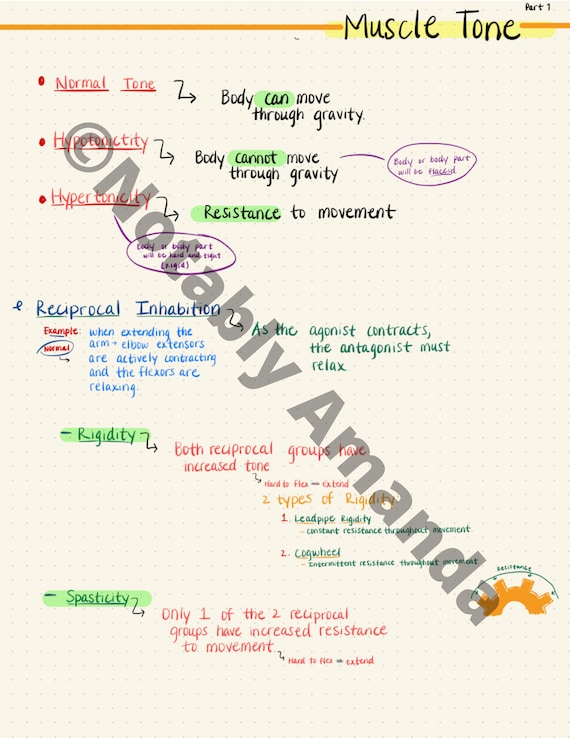 Part 1
Muscle Tone
Normal Tone
Body can move
through gravity.
Hypotonictity
Body cannot move
through gravity
Body or body part
will be flaccid
Hypertonicity
Resistance to movement
Body or body part
will be hard and tight
(rigid)
Reciprocal Inhabition
As the agonist contracts,
the antagonist must
relax
Example: when extending the
Normal arm → elbow extensors
are actively contracting
and the flexors are
relaxing.
- Rigidity
Both reciprocal groups have
increased tone
Hard to flex = extend
2 types of Rigidity:
1. Leadpipe Rigidity
- constant resistance throughout movement
2. Cogwheel
- Intermittent resistance throughout movement
Resistance
- Spasticity
Only 1 of the 2 reciprocal
groups have increased resistance
to movement
Hard to flex = extend
©Notably Amanda